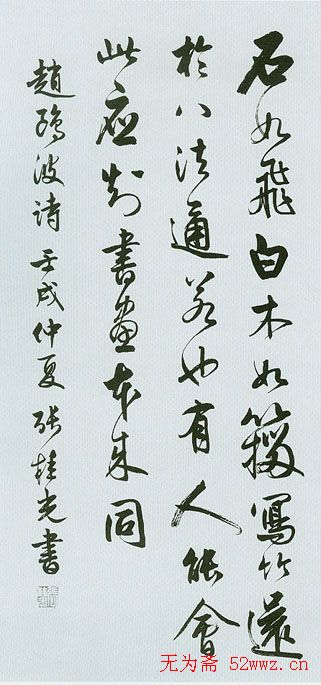 石如飛白木如籀寫竹還
於八法通若也有人能會
此應知書畫本来同
趙鷗波詩 壬戌仲夏 張桂光書
无为斋 52wwz.cn